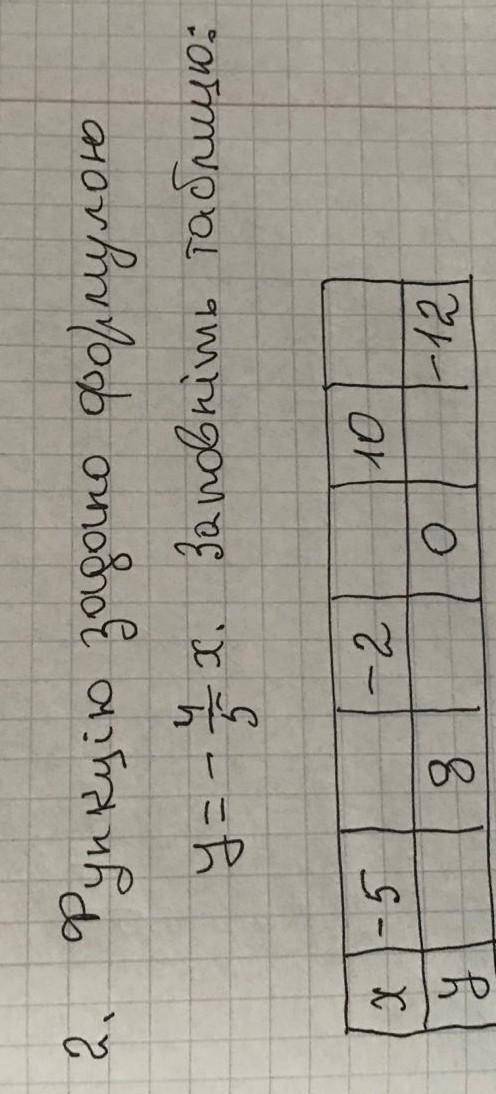 2. Функцію задано формулою
y = - 4/5 x. Заповніть таблицю:
x -5 -2 10
y 8 0 -12